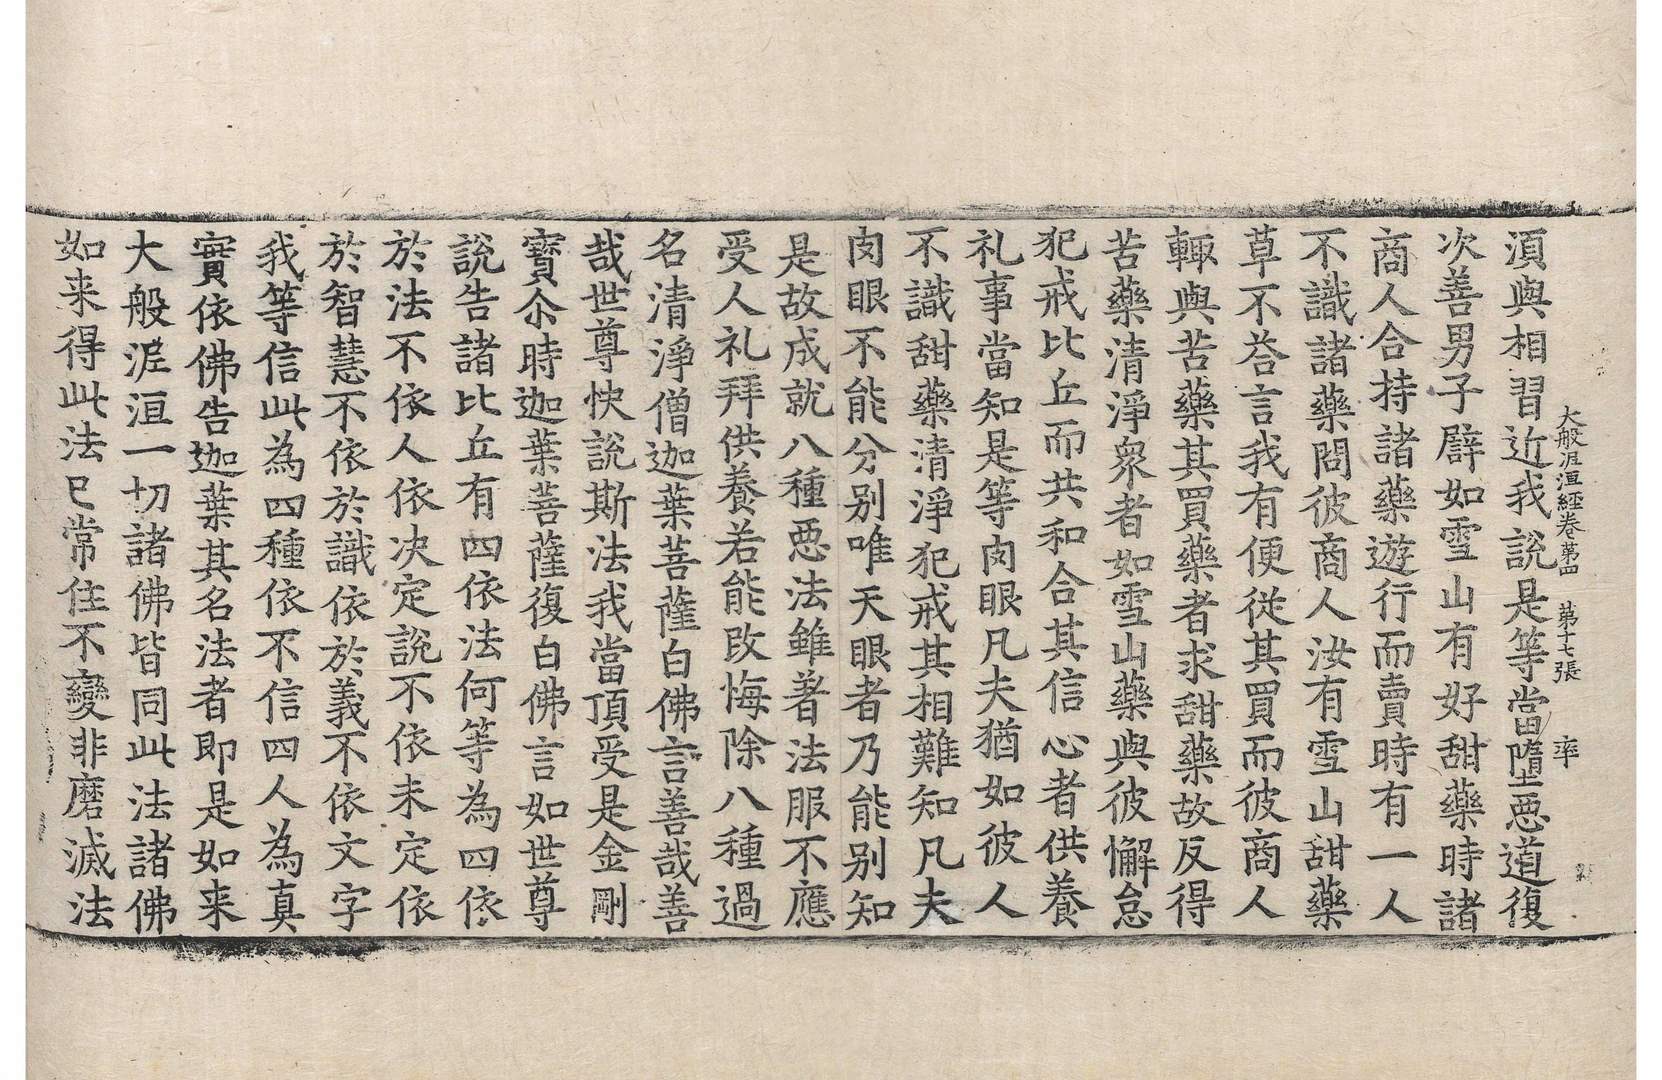 大般泥洹經卷第四　第十七張　率
須與相習近我說是等當墮惡道復
次善男子譬如雪山有好甜藥時諸
商人合持諸藥遊行而賣時有一人
不識諸藥問彼商人汝有雪山甜藥
草不荅言我有便從其買而彼商人
輙與苦藥其買藥者求甜藥故反得
苦藥清淨衆者如雪山藥與彼懈怠
犯戒比丘而共和合其信心者供養
礼事當知是等肉眼凡夫猶如彼人
不識甜藥清淨犯戒其相難知凡夫
肉眼不能分别唯天眼者乃能别知
是故成就八種惡法雖著法服不應
受人礼拜供養若能改悔除八種過
名清淨僧迦葉菩薩白佛言善哉善
哉世尊快說斯法我當頂受是金剛
寶尒時迦葉菩薩復白佛言如世尊
說告諸比丘有四依法何等為四依
於法不依人依决定說不依未定依
於智慧不依於識依於義不依文字
我等信此為四種依不信四人為真
實依佛告迦葉其名法者即是如来
大般泥洹一切諸佛皆同此法諸佛
如来得此法已常住不變非磨滅法